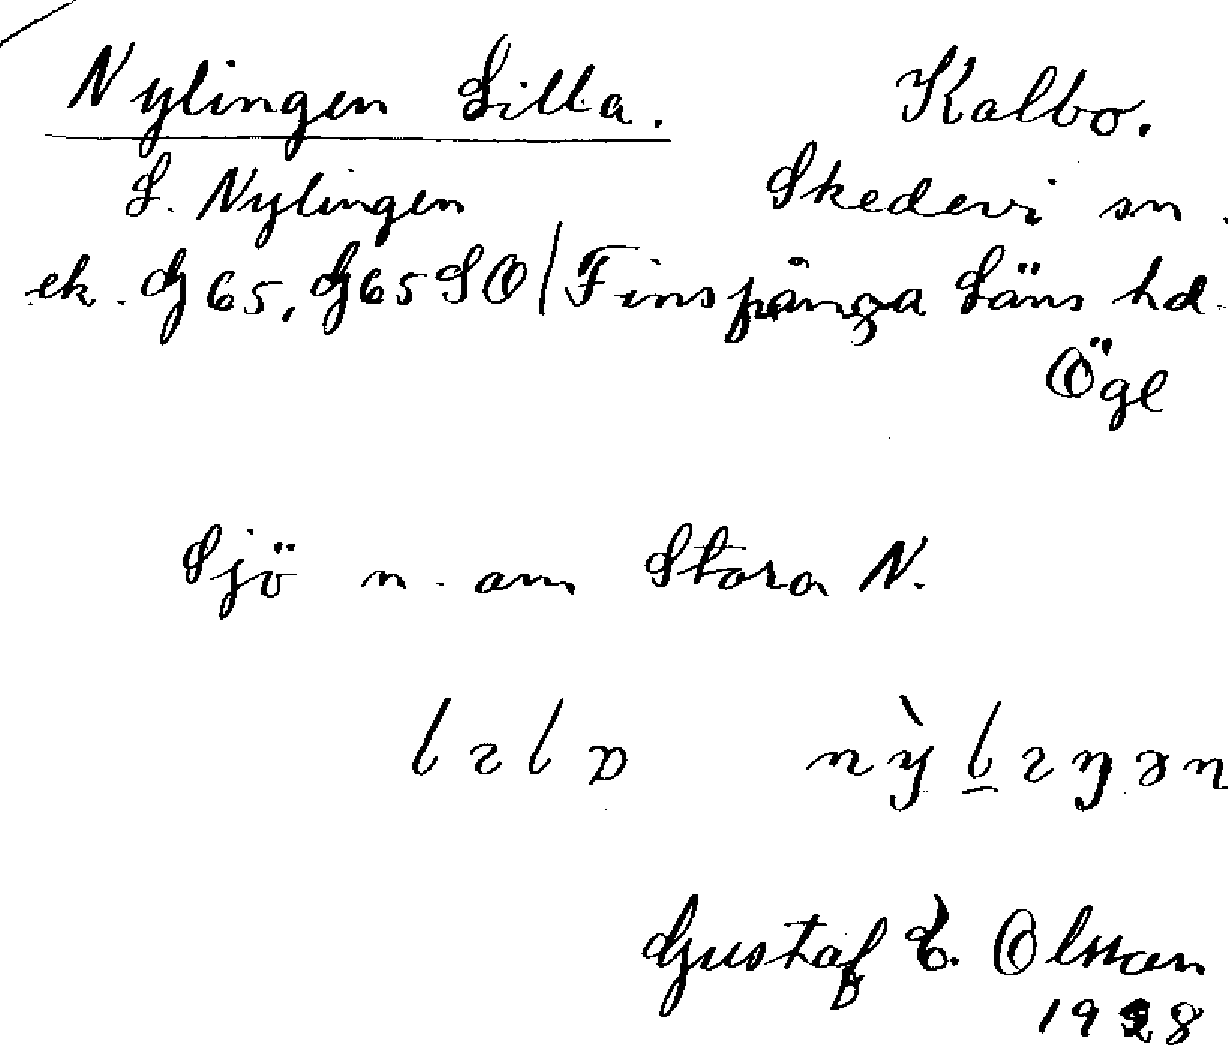 Nylingen Lilla. Kalbo.
L. Nylingen Skedevi sn.
ek. G 65, G 65 SO / Finspånga Läns hd.
Ögl
Sjö n. om Stora N.
lɩlɒ nỳlɩŋən
Gustaf E. Olsson
1928